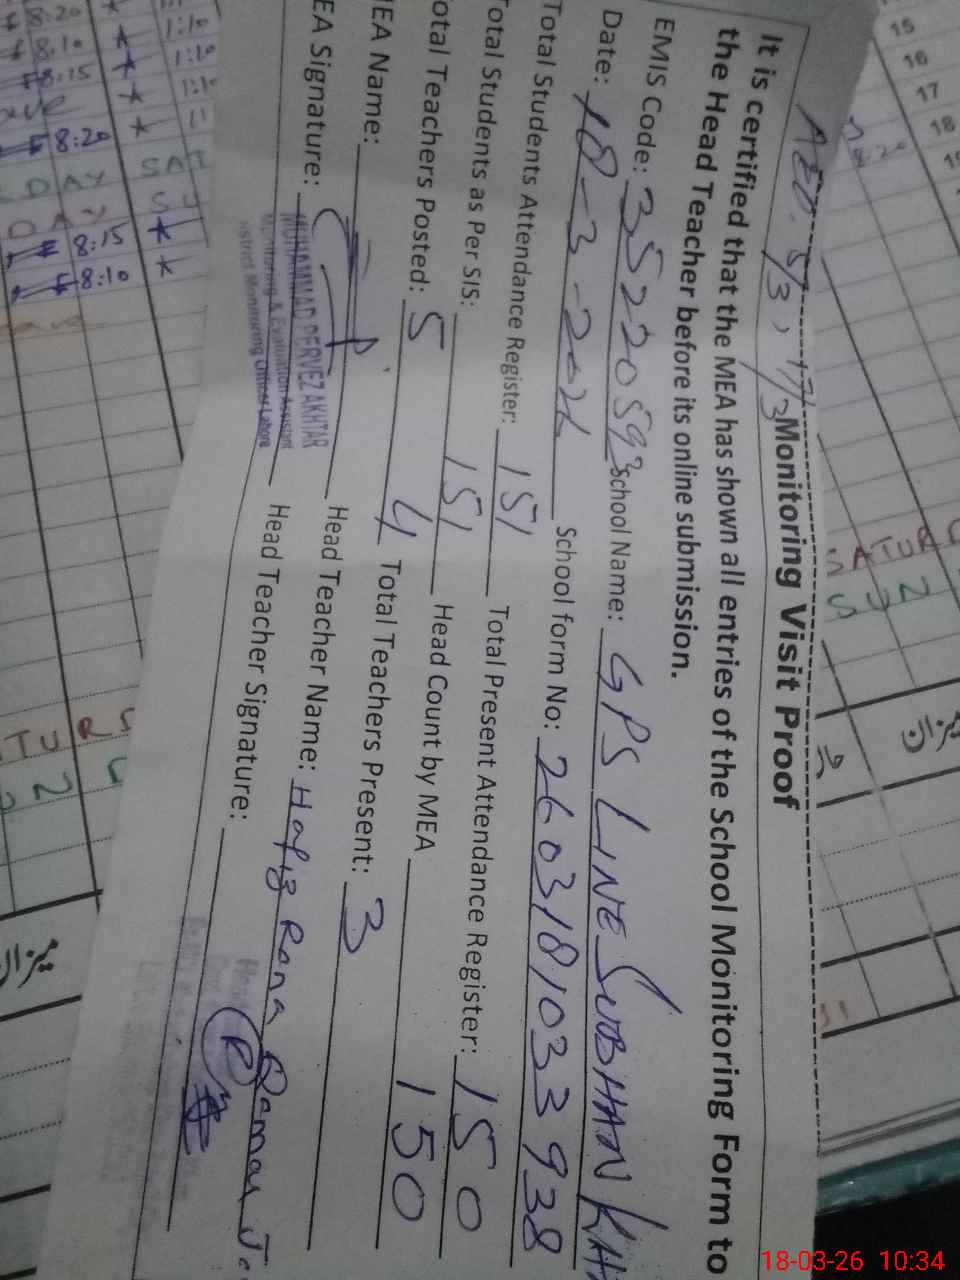 AEO. 5/3, 17/3
Monitoring Visit Proof
It is certified that the MEA has shown all entries of the School Monitoring Form to
the Head Teacher before its online submission.
EMIS Code: 35220593 School Name: GPS LINE SUBHAN KHA
Date: 18-3-2026 School form No: 2603181033938
Total Students Attendance Register: 151 Total Present Attendance Register: 150
Total Students as Per SIS: 151 Head Count by MEA 150
Total Teachers Posted: 5 4 Total Teachers Present: 3
MEA Name: Head Teacher Name: Hafiz Rana Qamar
EA Signature: Head Teacher Signature:
MUHAMMAD PERVEZ AKHTAR
Monitoring & Evaluation Assistant
District Monitoring Officer Lahore
8:20
8:10
8:15
8:20
DAY SAT
8:15
8:10
15
16
17
18
8:20
SATURD
SUN
میزان
TURS
میزان
18-03-26 10:34